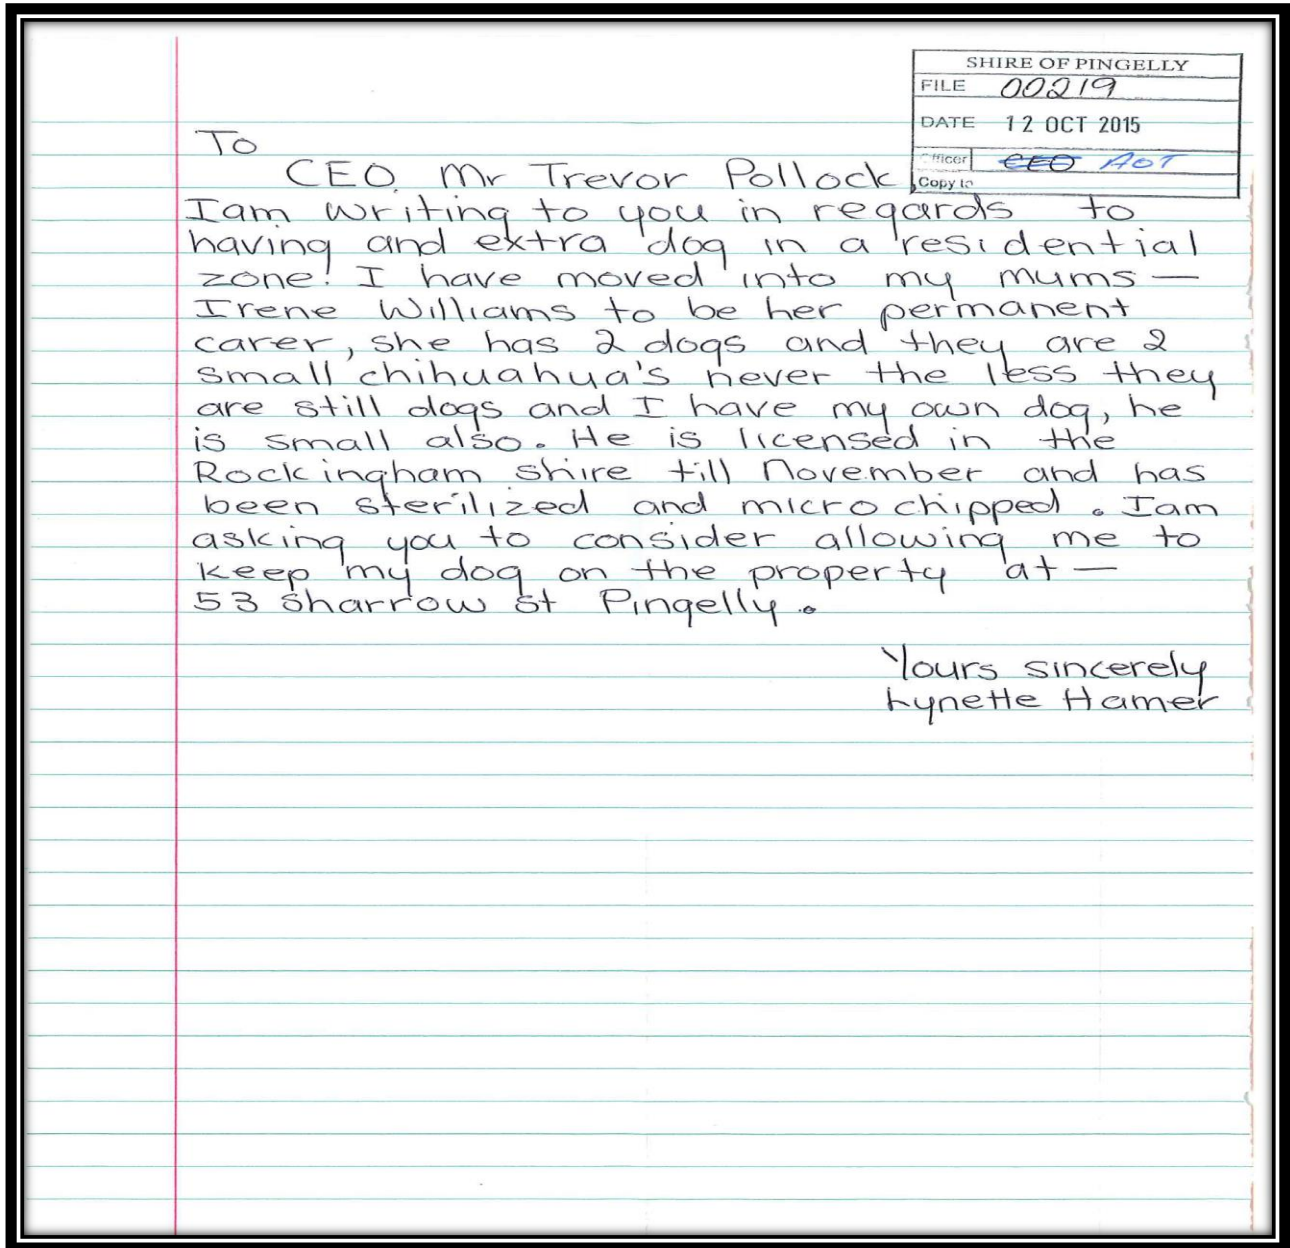 SHIRE OF PINGELLY
FILE 00219
DATE 12 OCT 2015
Officer CEO AOT
Copy to
To
CEO. Mr Trevor Pollock,
Iam writing to you in regards to
having and extra dog in a residential
zone! I have moved into my mums —
Irene Williams to be her permanent
carer, she has 2 dogs and they are 2
small chihuahua's never the less they
are still dogs and I have my own dog, he
is small also. He is licensed in the
Rockingham shire till November and has
been sterilized and micro chipped. Iam
asking you to consider allowing me to
keep my dog on the property at —
53 Sharrow st Pingelly.
Yours sincerely
Lynette Hamer